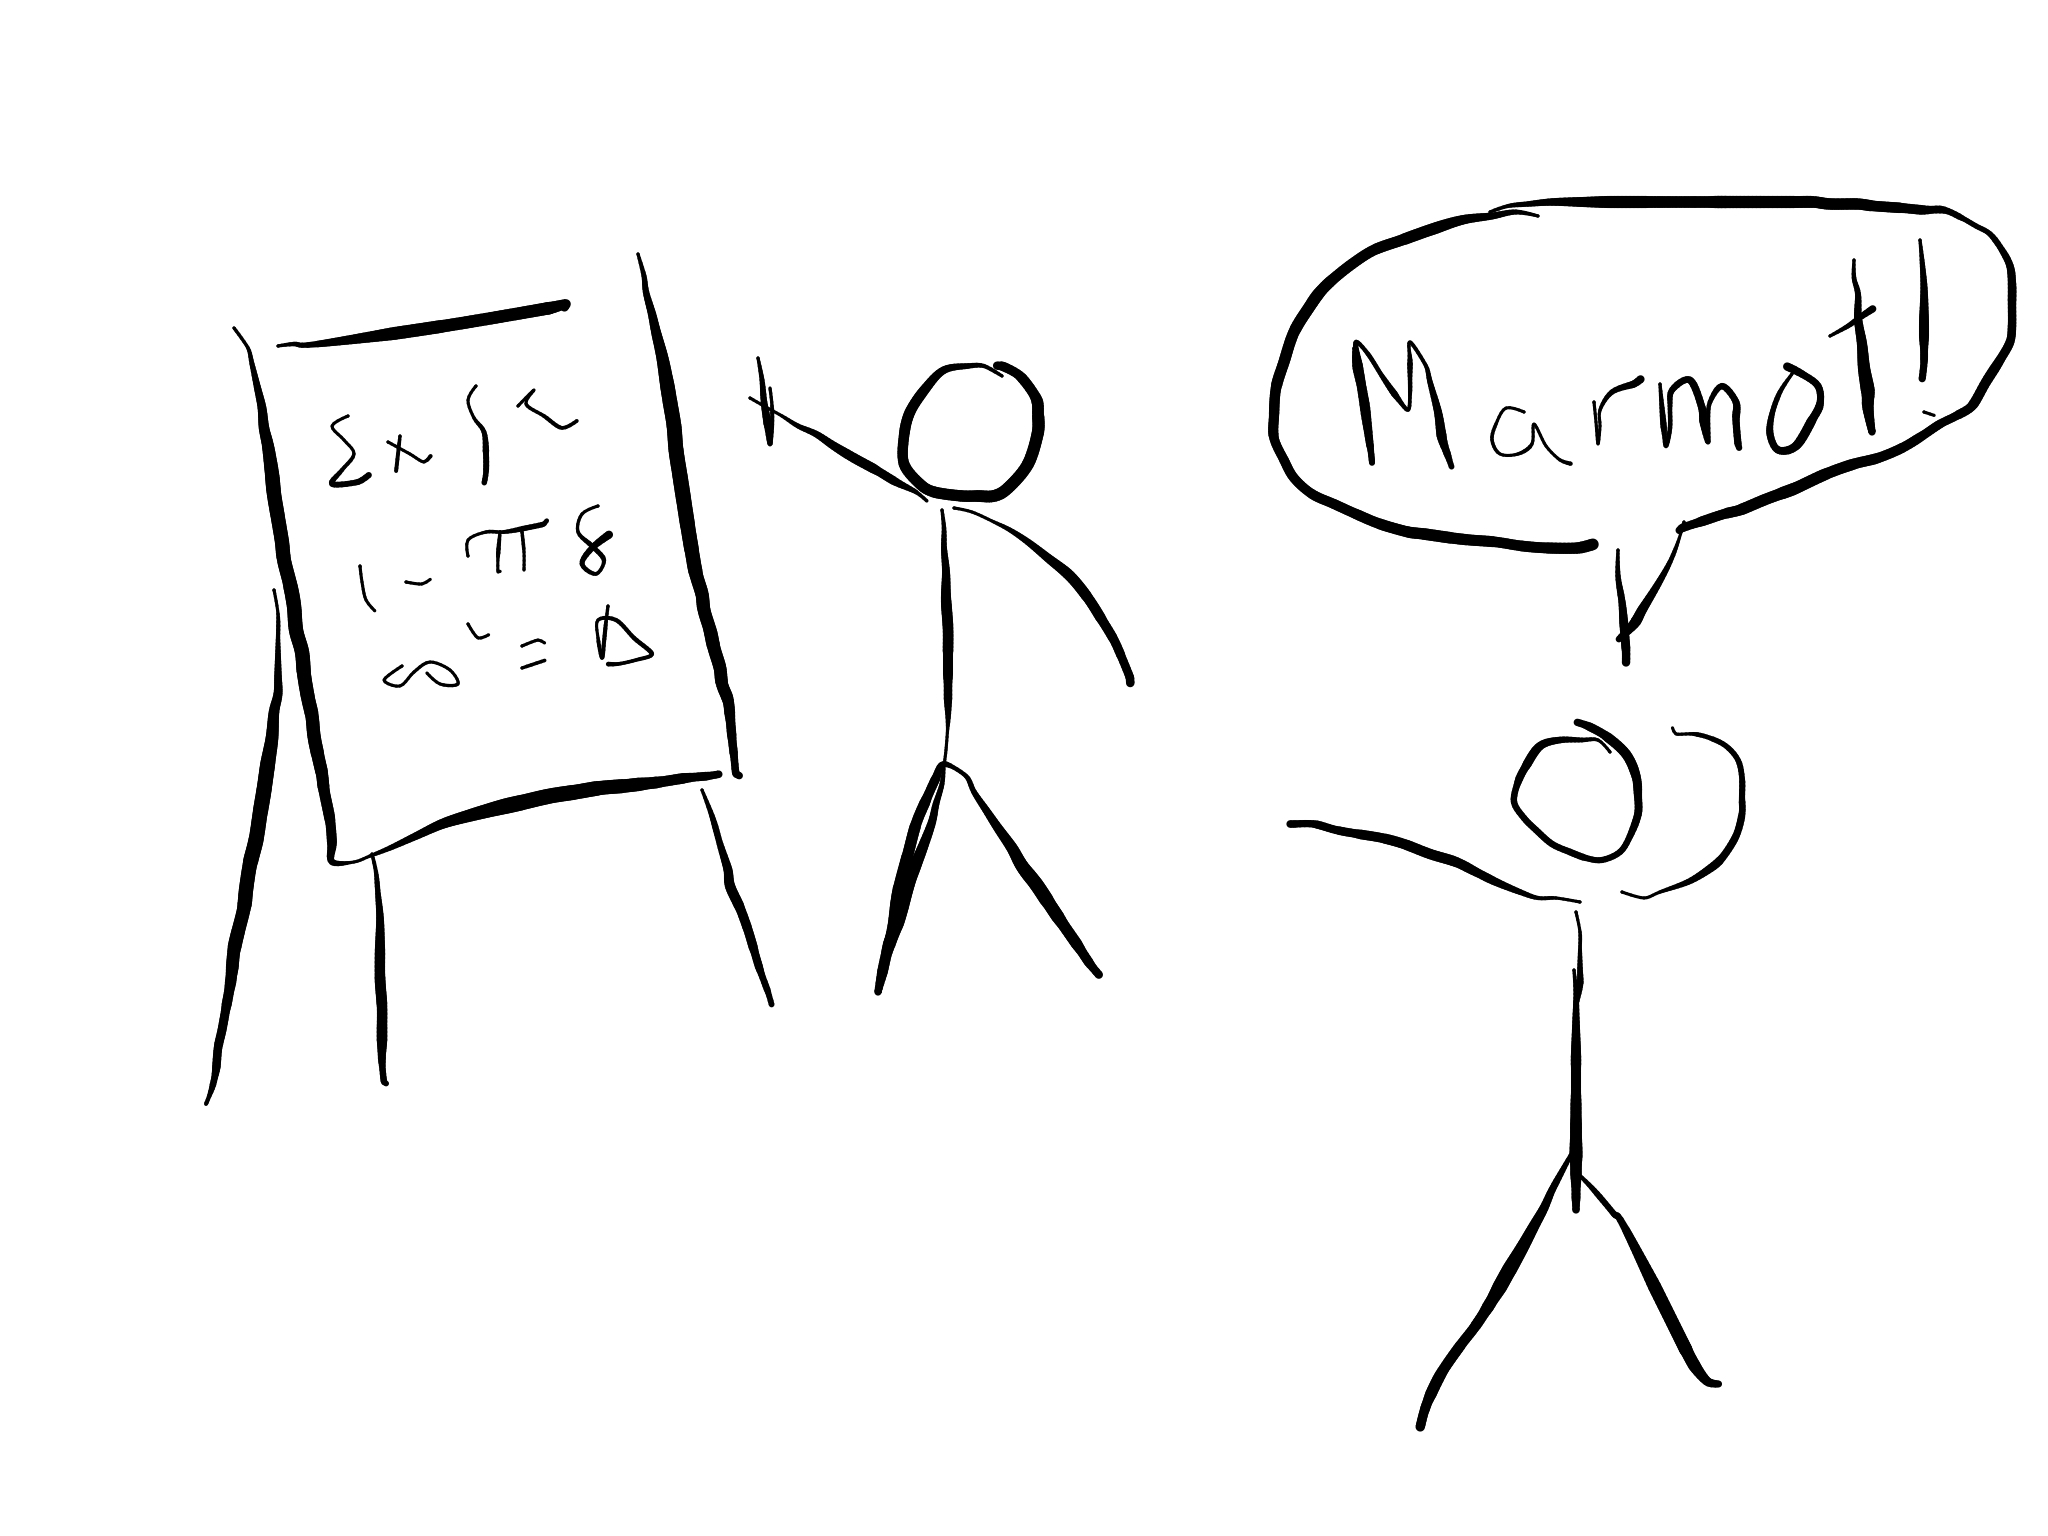 Σx ∫ ~
1 - π 8
∞ = D
Marmot!